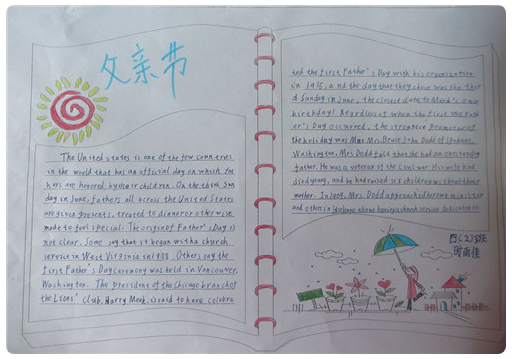 父亲节
The United States is one of the few countries
in the world that has an official day on which fat
hers are honored by their children. On the third Sun
day in June, fathers all across the United States
are given presents, treated to dinner or otherwise
made to feel special. The origin of Father's Day is
not clear. Some say that it began with a church
service in West Virginia in 1908. Others say the
first Father's Day ceremony was held in Vancouver,
Washington. The president of the Chicago branch of
the Lions' Club, Harry Meek, is said to have celebra
ted the first Father's Day with his organization
in 1915, and the day that they chose was the thir
d Sunday in June, the closest date to Meek's own
birthday! Regardless of when the first true Fath
er's Day occurred, the strongest promoter of
the holiday was Mrs. Bruce John Dodd of Spokane,
Washington. Mrs. Dodd felt that she had an outstanding
father. He was a veteran of the Civil War. His wife had
died young, and he had raised six children without their
mother. In 1909, Mrs. Dodd approached her own minister
and others in Spokane about having a church service dedicated to
四(2)班